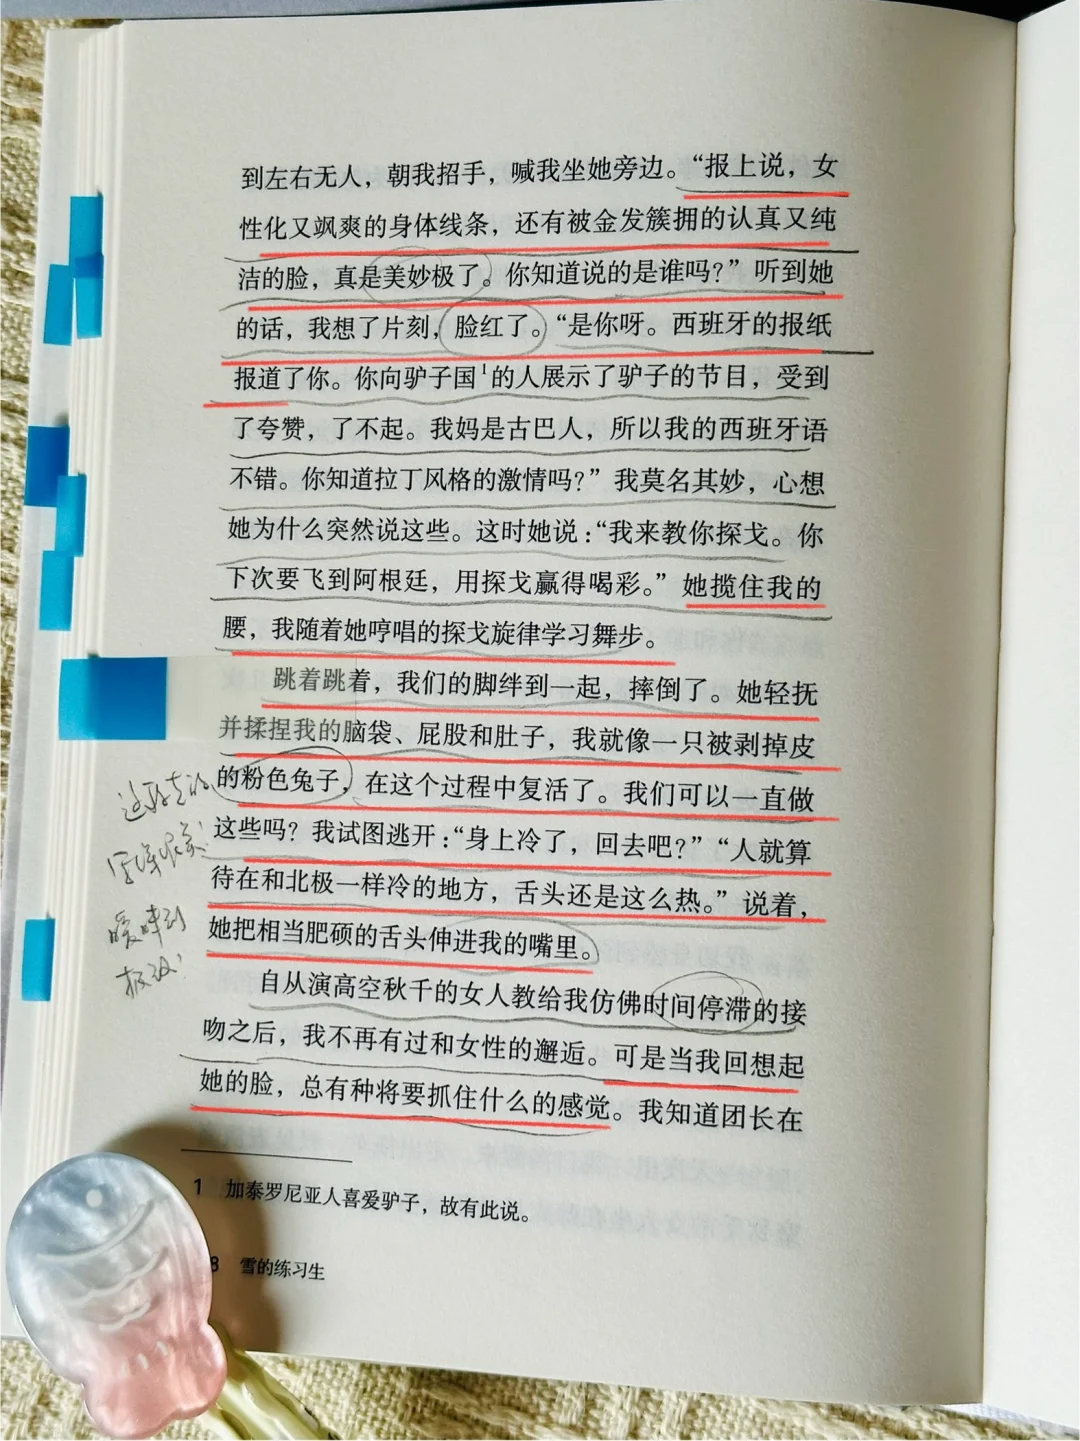 到左右无人，朝我招手，喊我坐她旁边。“报上说，女
性化又飒爽的身体线条，还有被金发簇拥的认真又纯
洁的脸，真是美妙极了。你知道说的是谁吗？”听到她
的话，我想了片刻，脸红了。“是你呀。西班牙的报纸
报道了你。你向驴子国1的人展示了驴子的节目，受到
了夸赞，了不起。我妈是古巴人，所以我的西班牙语
不错。你知道拉丁风格的激情吗？”我莫名其妙，心想
她为什么突然说这些。这时她说：“我来教你探戈。你
下次要飞到阿根廷，用探戈赢得喝彩。”她揽住我的
腰，我随着她哼唱的探戈旋律学习舞步。
跳着跳着，我们的脚绊到一起，摔倒了。她轻抚
并揉捏我的脑袋、屁股和肚子，我就像一只被剥掉皮
的粉色兔子，在这个过程中复活了。我们可以一直做
这些吗？我试图逃开：“身上冷了，回去吧？”“人就算
待在和北极一样冷的地方，舌头还是这么热。”说着，
她把相当肥硕的舌头伸进我的嘴里。
自从演高空秋千的女人教给我仿佛时间停滞的接
吻之后，我不再有过和女性的邂逅。可是当我回想起
她的脸，总有种将要抓住什么的感觉。我知道团长在
暧昧到
极致！
1 加泰罗尼亚人喜爱驴子，故有此说。
8 雪的练习生